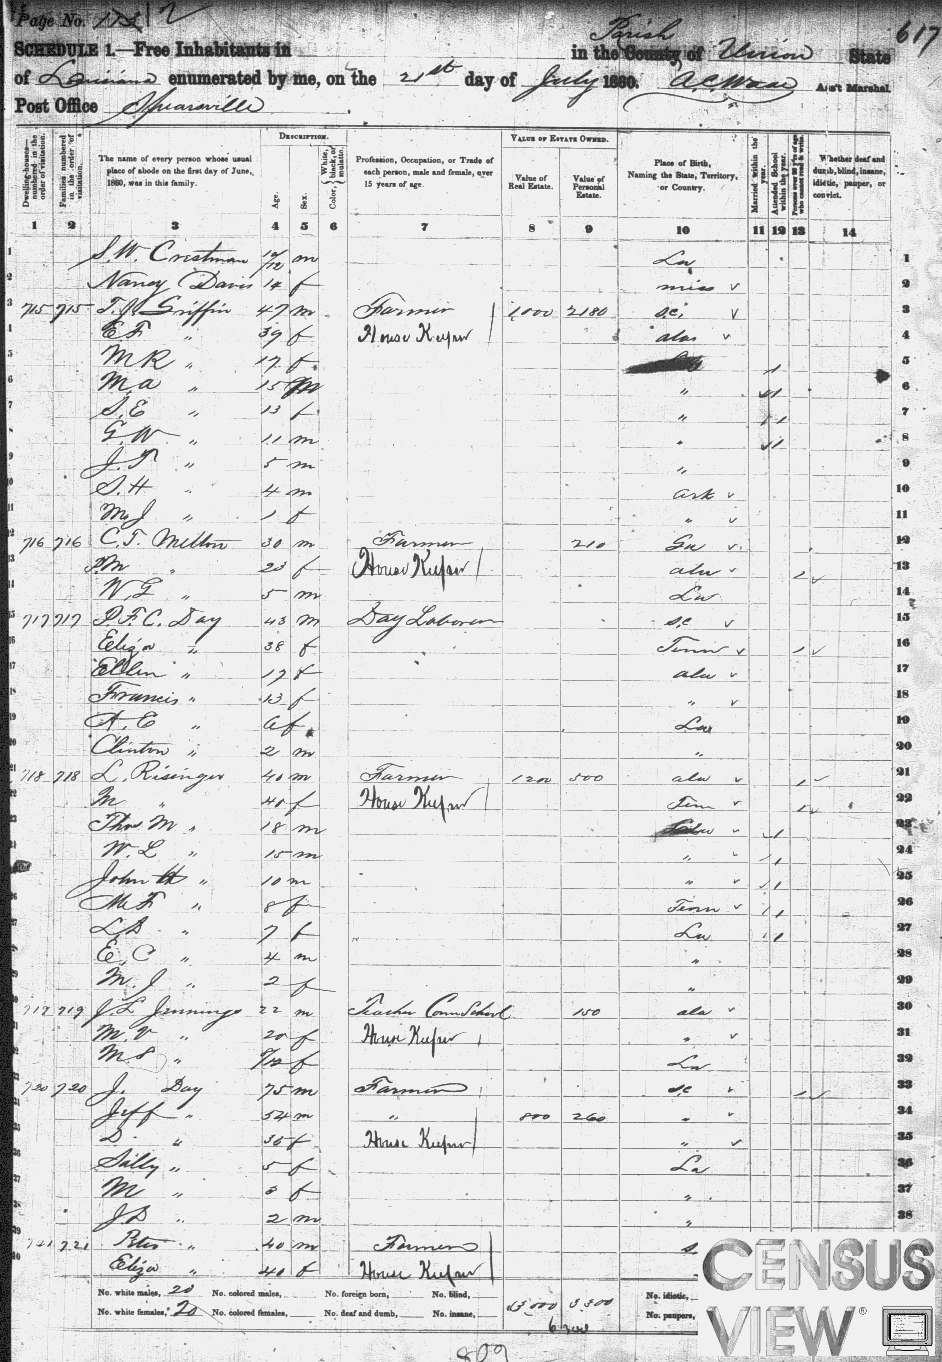 Page No. 172 12
617
SCHEDULE 1.—Free Inhabitants in in the County of Parish Union State
of Louisiana enumerated by me, on the 21st day of July 1860. Ass't Marshal
Post Office Spearsville
DESCRIPTION. VALUE OF ESTATE OWNED.
Dwelling-houses—numbered in the order of visitation.
Families numbered in the order of visitation.
The name of every person whose usual place of abode on the first day of June, 1860, was in this family.
Age.
Sex.
Color, White, black, or mulatto.
Profession, Occupation, or Trade of each person, male and female, over 15 years of age.
Value of Real Estate.
Value of Personal Estate.
Place of Birth, Naming the State, Territory, or Country.
Married within the year.
Attended School within the year.
Persons over 20 y'rs of age who cannot read & write.
Whether deaf and dumb, blind, insane, idiotic, pauper, or convict.
1 2 3 4 5 6 7 8 9 10 11 12 13 14
1 S. W. Crestman 10/12 m La 1
2 Nancy Davis 14 f miss 2
3 715 715 T. J. Griffin 47 m Farmer 1,000 2180 S.C. 3
E F " 39 f House Keeper ala 4
5 M R " 17 f 1 5
6 M. a " 15 m " 1 6
7 S. E " 13 f " 1 7
G. W " 11 m " 1 8
J. T " 5 m " 9
S. H " 4 m ark 10
M J " 1 f " 11
716 716 C. T. Melton 30 m Farmer 210 Ga 12
M " 23 f House Keeper ala 1 13
W. G " 5 m La 14
717 717 P. F. C. Day 43 m Day Laborer S.C 15
Eliza " 38 f Tenn 1 16
Ellen " 17 f ala 17
Francis " 13 f " 18
A. E " 6 f La 19
Clinton " 2 m " 20
718 718 L. Risinger 40 m Farmer 1200 500 ala 1 21
M " 40 f House Keeper Tenn 1 22
Thos M " 18 m 1 23
W. L " 15 m " 1 24
John H " 10 m " 1 25
M. F " 8 f Tenn 1 26
L. D " 7 f La 1 27
E. C " 4 m " 28
M. J " 2 f " 29
719 719 J. L. Jennings 22 m Teacher Com School 150 ala 30
M. V " 20 f House Keeper " 31
M. S " f La 32
720 720 J. Day 75 m Farmer S.C 1 33
Jeff " 54 m " 800 260 " 34
D. " 36 f House Keeper " 35
Sally " 5 f La 36
M " 3 f " 37
J. D " 2 m " 38
721 721 " 40 m Farmer
Eliza " 40 f House Keeper
No. white males, 20 No. colored males, No. foreign born, No. blind, 3,000 3,300 No. idiotic,
No. white females, 20 No. colored females, No. deaf and dumb, No. insane, No. paupers,
809
CENSUS
VIEW®